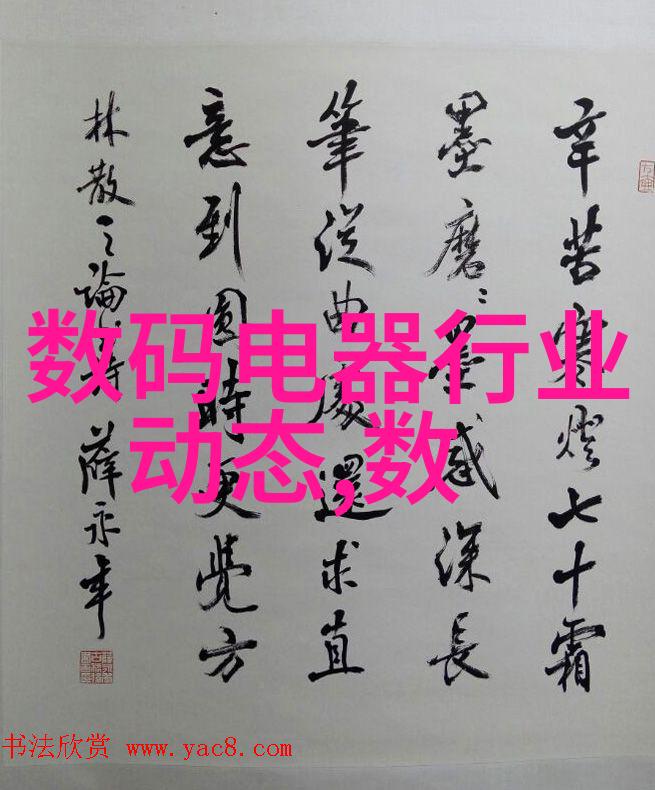 辛苦寒燈七十霜
墨磨〻墨感深長
筆從曲處還求直
意到圓時更覺方
林散之論書詩 薛永年
数码电器行业
动态,数
书法欣赏 www.yac8.com